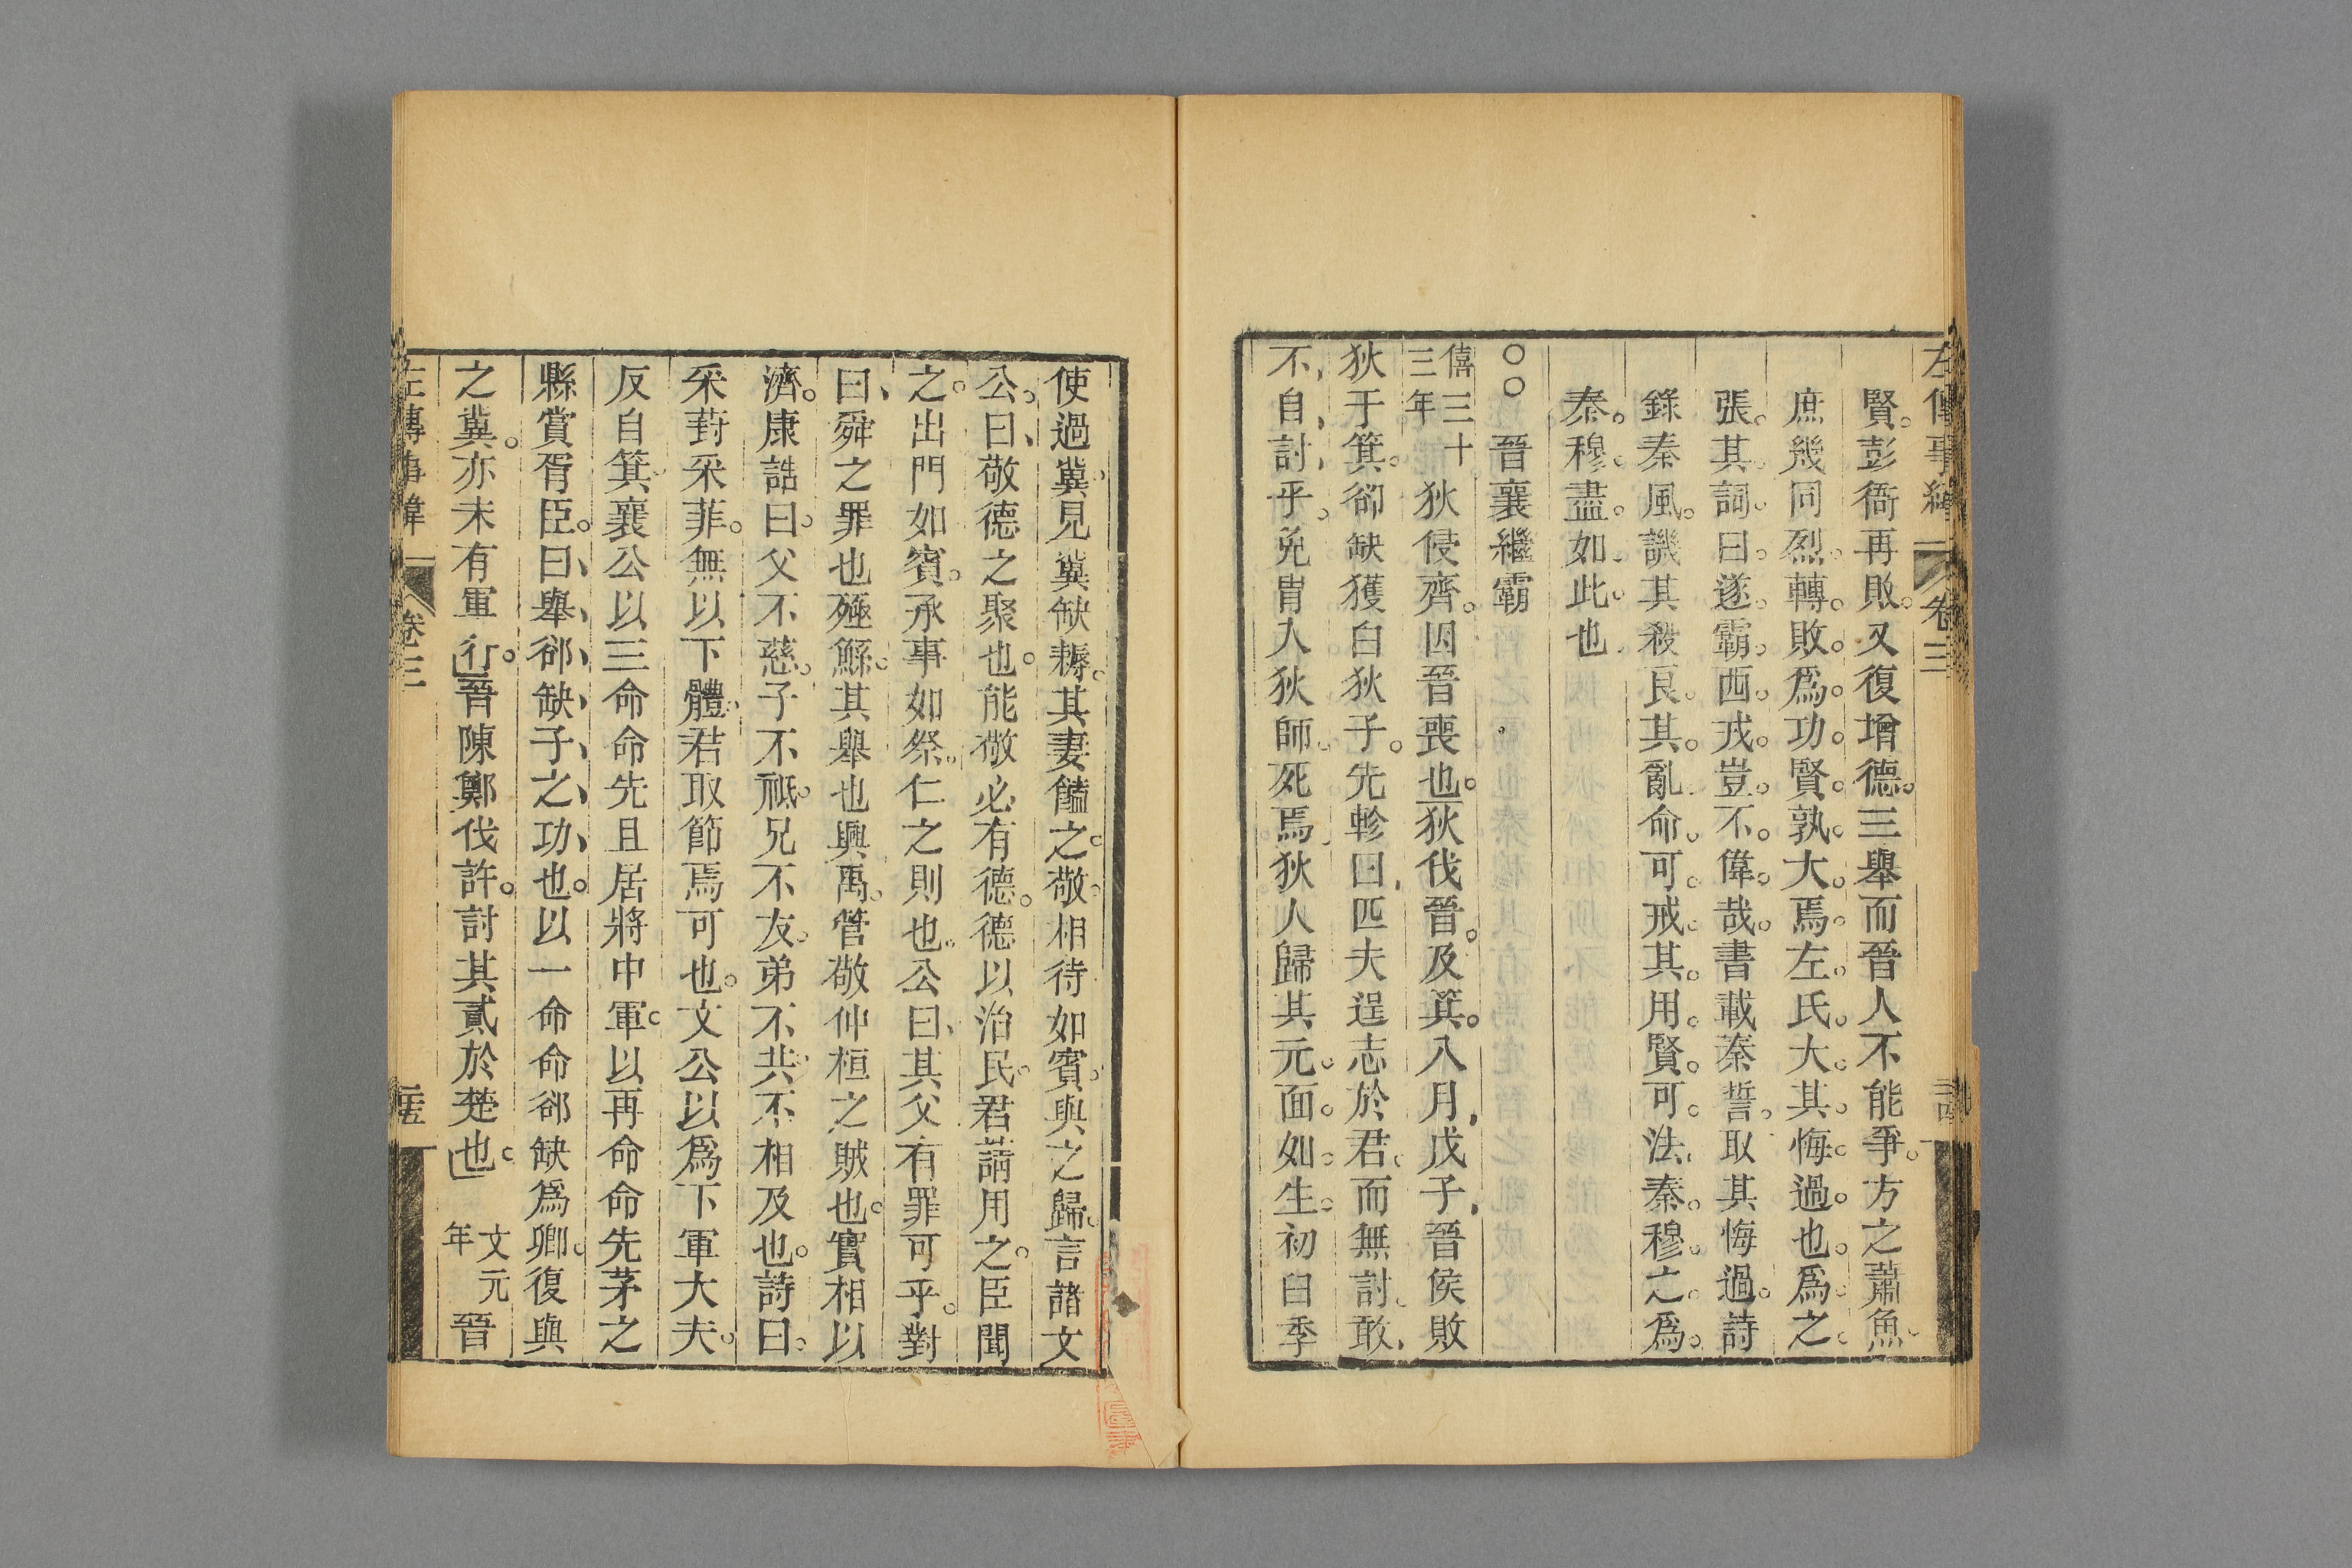 左傳事緯 卷三
賢。彭衙再敗。又復增德。三舉而晉人不能爭。方之蕭魚。
庶幾同烈。轉。敗。爲。功。賢。孰。大。焉。左。氏。大。其。悔。過。也。爲。之。
張。其。詞。曰。遂。霸。西。戎。豈。不。偉。哉。書載秦誓。取其悔過。詩
錄秦風。譏其殺良。其。亂。命。可。戒。其。用。賢。可。法。秦。穆。之。爲。
秦。穆。盡。如。此。也
○○晉襄繼霸
僖三十
三年
狄侵齊。因晉喪也。狄伐晉。及箕。八月、戊子、晉侯敗
狄于箕。郤缺獲白狄子。先軫曰、匹夫逞志於君。而無討。敢、
不、自、討、乎。免胄入狄師。死焉、狄人歸其元。面。如。生。初臼季
使過冀、見冀缺耨。其妻饁之。敬。相待如賓。與之歸。言諸文
公。曰、敬德之聚也。能敬必有德。德以治民。君請用之。臣聞
之。出門如賓。承事如祭。仁之則也。公曰、其父有罪可乎。對
曰、舜之罪也殛鯀。其舉也興禹。管敬仲桓之賊也。實相以
濟。康誥曰。父不慈。子不祗。兄不友。弟不共。不相及也。詩曰。
采葑采菲。無以下體。君取節焉可也。文公以爲下軍大夫。
反自箕、襄公以三命命先且居將中軍。以再命命先茅之
縣賞胥臣。曰、舉、郤、缺、子、之、功、也。以一命命郤缺爲卿。復與
之冀。亦未有軍行。晉陳鄭伐許。討其貳於楚也。
文元
年
晉
左傳事緯 卷三 二五